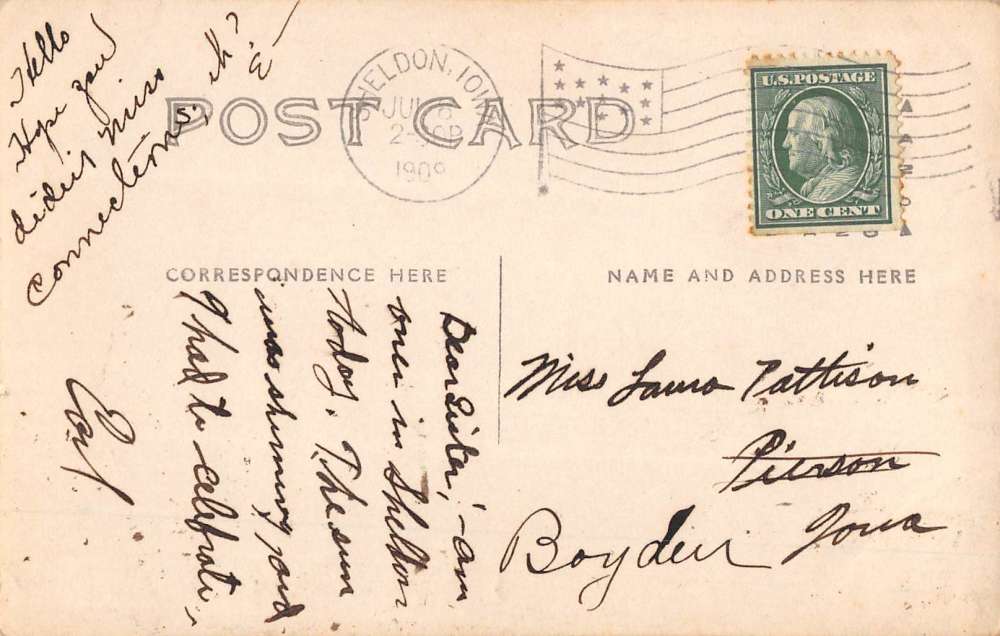 Hello
Hope you
didn't miss
connections, eh?
E
SHELDON, IOWA
JUL 6
2- 0P
1909
U.S. POSTAGE
ONE CENT
POST CARD
CORRESPONDENCE HERE
NAME AND ADDRESS HERE
Dear Sister, - am
over in Sheldon
today. The sun
was shining and
I had to celebrate.
Miss Laura Pattison
Pierson
Boyden Iowa